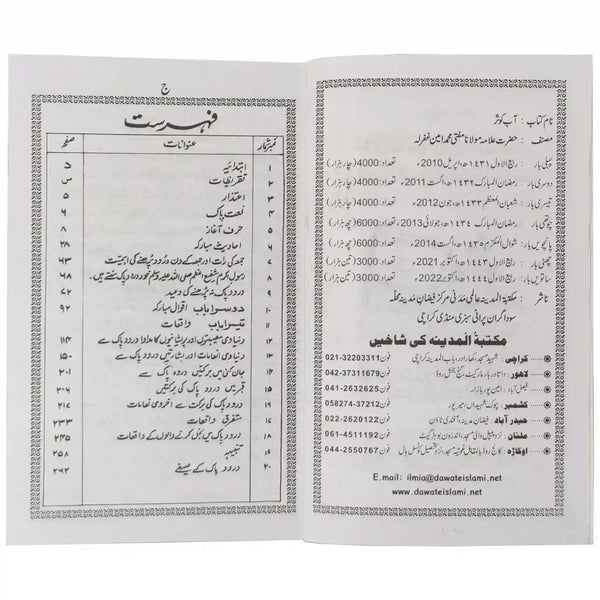 نام کتاب : آب کوثر
مصنف : حضرت علامہ مولانا مفتی محمد امین غفرلہ
پہلی بار : ربیع الاول ۱۴۳۱ھ، اپریل 2010ء تعداد: 4000 (چار ہزار)
دوسری بار : رمضان المبارک ۱۴۳۲ھ، اگست 2011ء تعداد: 4000 (چار ہزار)
تیسری بار : شعبان المعظم ۱۴۳۳ھ، جون 2012ء تعداد: 4000 (چار ہزار)
چوتھی بار : رمضان المبارک ۱۴۳۴ھ، جولائی 2013ء تعداد: 6000 (چھ ہزار)
پانچویں بار : شوال المکرم ۱۴۳۵ھ، اگست 2014ء تعداد: 6000 (چھ ہزار)
چھٹی بار : ربیع الاول ۱۴۴۳ھ، اکتوبر 2021ء تعداد: 3000 (تین ہزار)
ساتویں بار : ربیع الاول ۱۴۴۴ھ، اکتوبر 2022ء تعداد: 3000 (تین ہزار)
ناشر : مکتبۃ المدینہ عالمی مدنی مرکز فیضان مدینہ محلہ
سوداگران پرانی سبزی منڈی کراچی
مکتبۃ المدینہ کی شاخیں
کراچی : شہید مسجد، کھارادر، باب المدینہ کراچی فون 021-32203311
لاہور : داتا دربار مارکیٹ، گنج بخش روڈ فون 042-37311679
فیصل آباد : امین پور بازار فون 041-2632625
کشمیر : چوک شہیداں، میرپور فون 058274-37212
حیدر آباد : فیضان مدینہ، آفندی ٹاؤن فون 022-2620122
ملتان : نزد پیپل والی مسجد، اندرون بوہڑ گیٹ فون 061-4511192
اوکاڑہ : کالج روڈ بالمقابل غوثیہ مسجد، نزد تحصیل کونسل ہال فون 044-2550767
E.mail: ilmia@dawateislami.net
www.dawateislami.net
ج
فہرست
نمبر شمار عنوانات صفحہ
۱ ابتدائیہ د
۲ تقریظات س
۳ اعتذار ۵
۴ نعت پاک ۶
۵ حرف آغاز ۸
۶ احادیث مبارکہ ۲۸
۷ جمعہ کی رات اور جمعہ کے دن درود پڑھنے کی اہمیت ۶۳
۸ رسول اکرم شفیع اعظم صلی اللہ علیہ وسلم خود درود پاک سنتے ہیں۔ ۶۸
۹ درود پاک نہ پڑھنے کی وعید ۷۲
۱۰ دوسرا باب اقوال مبارکہ ۹۲
۱۱ تیسرا باب واقعات
۱۲ دنیاوی مصیبتوں اور پریشانیوں کا مداوا درود پاک سے ۱۱۴
۱۳ دنیاوی انعامات اور بشارتیں درود پاک سے ۱۵۰
۱۴ جان کنی میں برکتیں درود پاک سے
۱۵ قبر میں درود پاک کی برکتیں ۲۰۹
۱۶ درود پاک کی برکت سے اخروی نعمات ۲۱۷
۱۷ متفرق واقعات ۲۳۳
۱۸ درود پاک میں بخل کرنے والوں کے واقعات ۲۴۵
۱۹ تنبیہ ۲۵۸
۲۰ درود پاک کے صیغے ۲۶۲